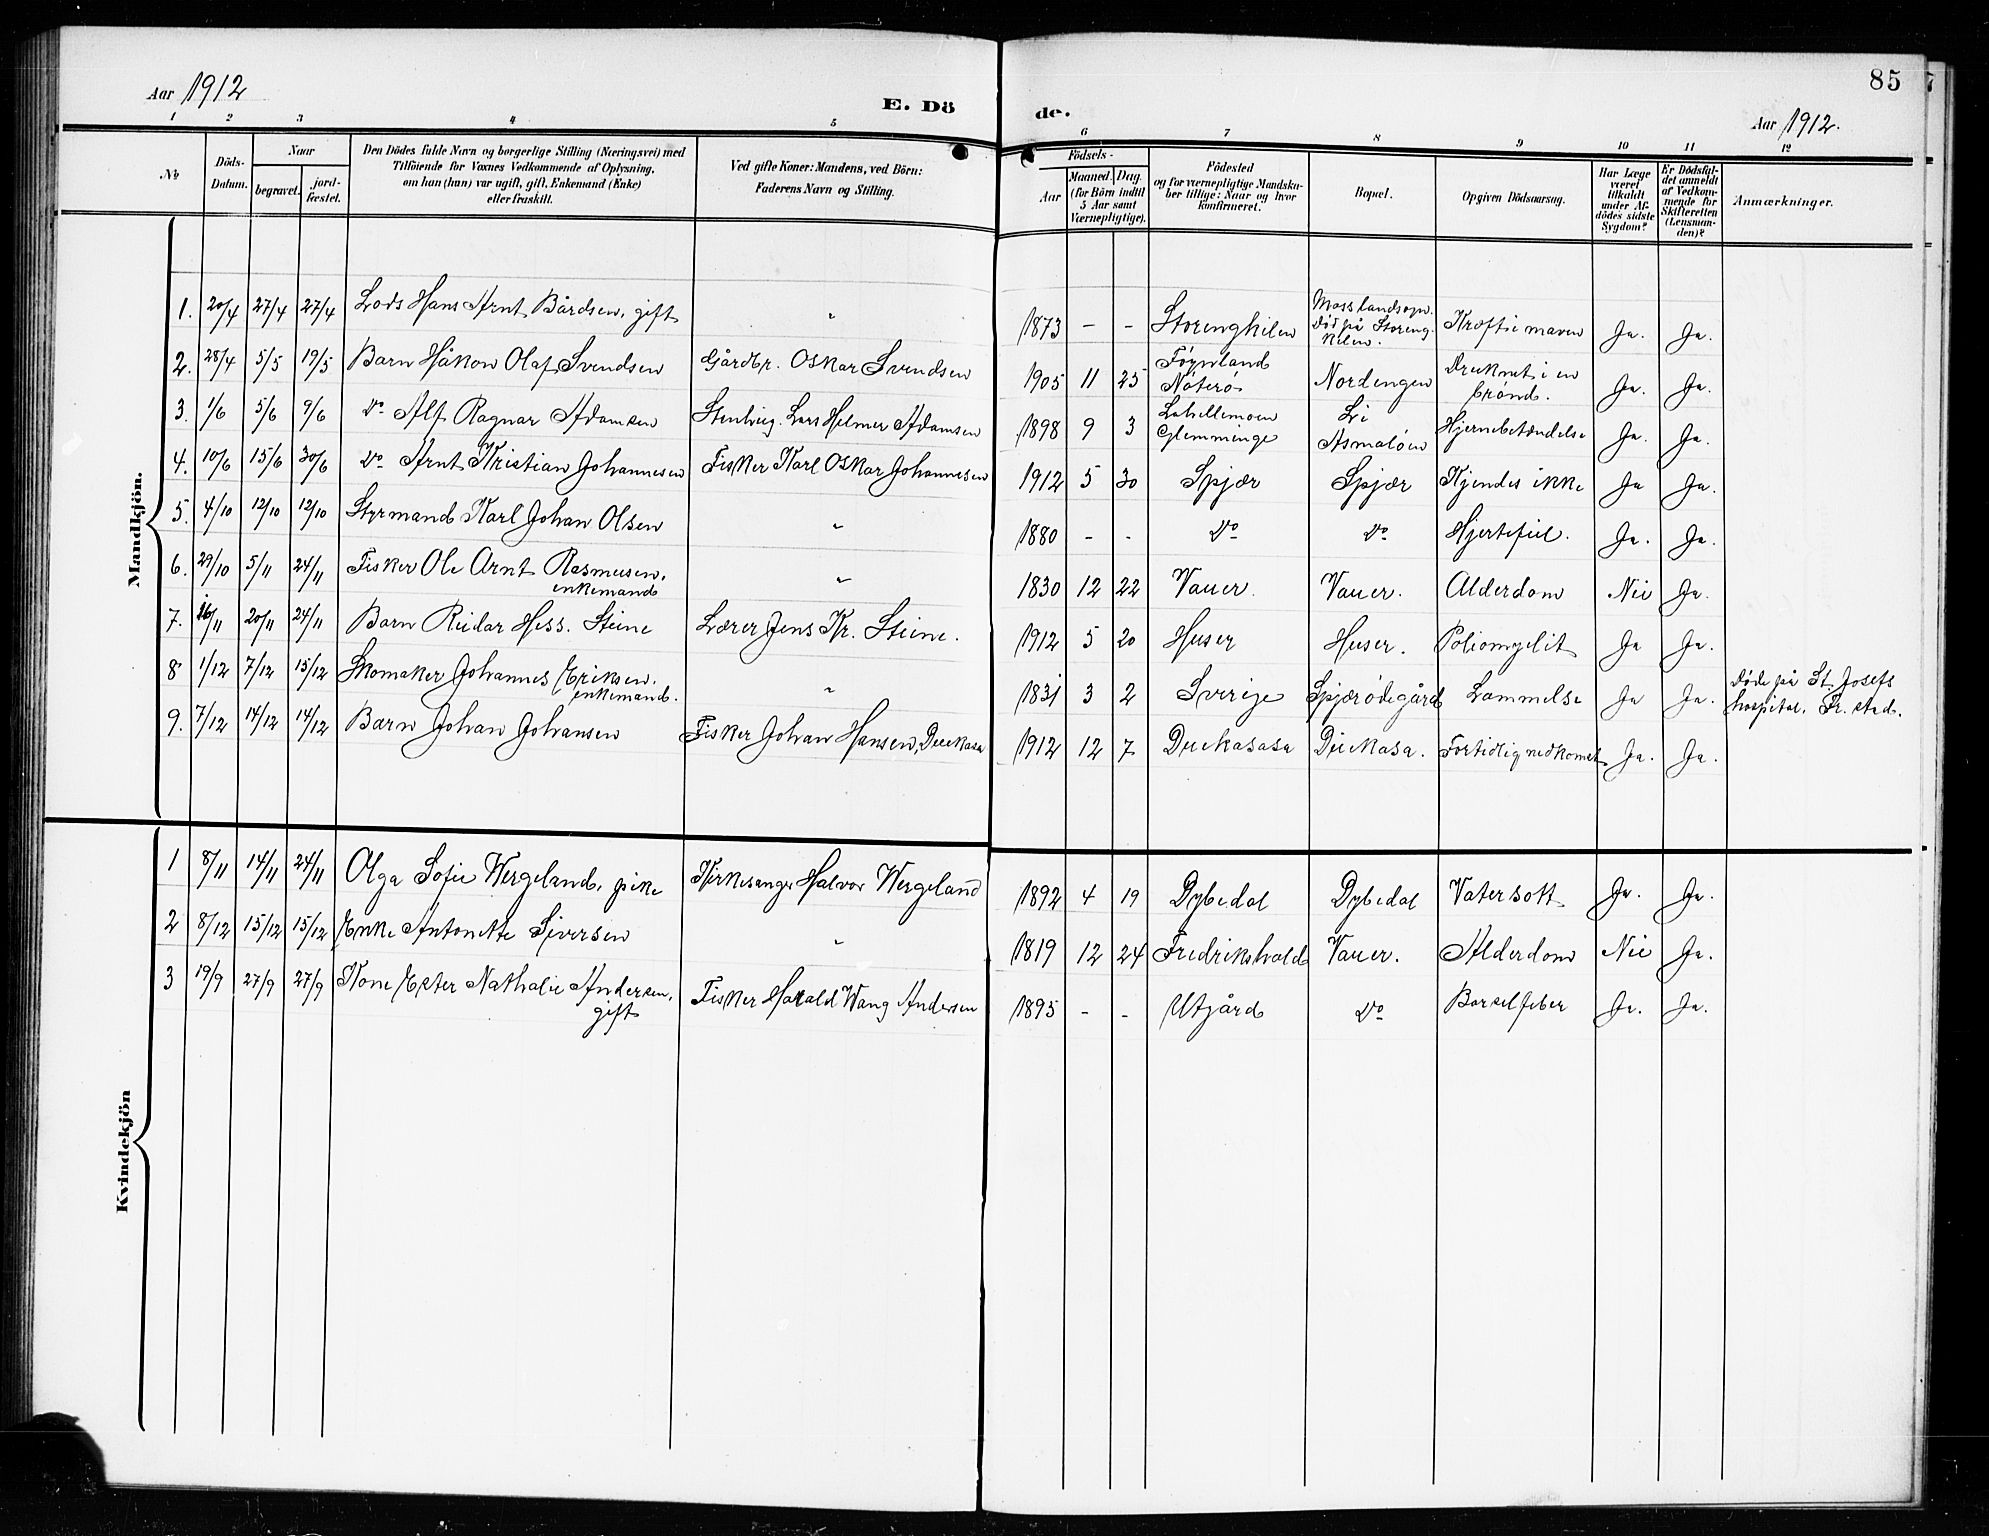 Aar 1912
E. Dö
de.
85
Aar 1912.
1 2 3 4 5 6 7 8 9 10 11 12
No
Döds-Datum.
Naar
begravet.
jord-fæstet.
Den Dödes fulde Navn og borgerlige Stilling (Næringsvei) med
Tilföiende for Voxnes Vedkommende af Oplysning,
om han (hun) var ugift, gift, Enkemand (Enke)
eller fraskilt.
Ved gifte Koner: Mandens, ved Börn:
Faderens Navn og Stilling.
Födsels-
Aar
Maaned. Dag.
(for Börn indtil
5 Aar samt
Værnepligtige).
Födested
og for værnepligtige Mandska-
ber tillige: Naar og hvor
konfirmeret.
Bopæl.
Opgiven Dödsaarsag.
Har Læge
været
tilkaldt
under Af-
dödes sidste
Sygdom?
Er Dödsfal-
det anmeldt
af Vedkom-
mende for
Skifteretten
(Lensman-
den)?
Anmærkninger.
Mandkjön.
1. 20/4 27/4 27/4 Lods Hans Arnt Bårdsen, gift " 1873 - - Storengkilen Mosslandsopn. Død på Storeng-kilen. Kræft i maven Ja. Ja.
2. 28/4 5/5 19/5 Barn Håkon Olaf Svendsen Gårdbr. Oskar Svendsen 1905 11 25 Föynland Nöterö Nordengen Druknet i en brönd. Ja. Ja.
3. 1/6 5/6 9/6 Do Alf Ragnar Adamsen Stenhug. Lars Helmer Adamsen 1898 9 3 Lahellemoen Glemminge Li Asmalöen Hjernebetændelse Ja. Ja.
4. 10/6 15/6 30/6 Do Arnt Kristian Johannesen Fisker Karl Oskar Johannesen 1912 5 30 Spjær Spjær Kjendes ikke Ja Ja.
5. 4/10 12/10 12/10 Styrmand Karl Johan Olsen " 1880 - - Do Do Hjertefeil. Ja. Ja.
6. 29/10 5/11 24/11 Fisker Ole Arnt Rasmusen, enkemand " 1830 12 22 Vauer. Vauer. Alderdom Nei Ja.
7. 16/11 20/11 24/11 Barn Reidar Hess. Steine Lærer Jens Kr. Steine. 1912 5 20 Huser Huser. Poliomyelit Ja Ja.
8 1/12 7/12 15/12 Skomaker Johannes Eriksen. enkemand. " 1831 3 2 Sverige Spjærödegård Lammelse Ja Ja. Døde på St. Josefs hospital, Fr.stad.
9. 7/12 14/12 14/12 Barn Johan Johansen Fisker Johan Hansen, Duekasa 1912 12 7 Duekasasa Duekasa. Fortidlig nedkomst Ja. Ja.
Kvindekjön
1 8/11 14/11 24/11 Olga Sofie Wergeland, pike Kirkesanger Halvor Wergeland 1892 4 19 Dybedal Dybedal Vatersott Ja. Ja.
2 8/12 15/12 15/12 Enke Antonette Siversen " 1819 12 24 Fredrikshald Vauer. Alderdom Nei Ja.
3 19/9 27/9 27/9 Kone Ester Nathalie Andersen, gift Fisker Harald Wang Andersen 1895 - - Utgård Do Barselfeber Ja. Ja.